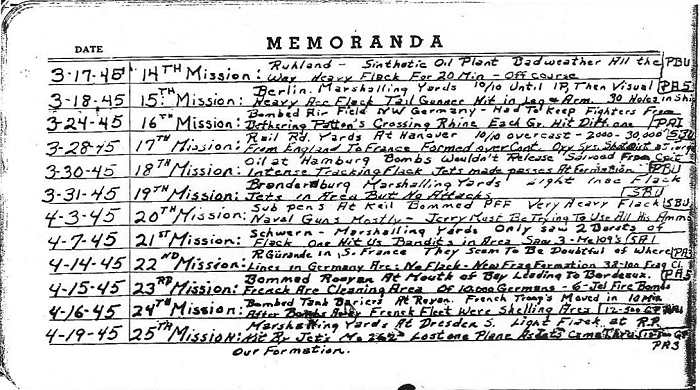 DATE MEMORANDA
Ruhland - Sinthetic Oil Plant Badweather All the PBU
3-17-45 14TH Mission: Way Heavy Flack For 20 Min - Off course
Berlin. Marshalling Yards 10/10 Until IP, Then Visual PAS
3-18-45 15TH Mission: Heavy Acc Flack Tail Gunner Hit in Leg & Arm. 30 Holes in Ship
Bombed Air Field NW Germany - Had To Keep Fighters From
3-24-45 16TH Mission: Patton's Crossing Rhine Each Gr. Hit Diff one PAI
Rail Rd. Yards At Hanover 10/10 overcast - 2000 - 30,000'
3-28-45 17TH Mission: From England To France Formed over Cont. Oxy Sys. Shot
Oil at Hamburg Bombs Wouldn't Release Salvoed From
3-30-45 18TH Mission: Intense Tracking Flack Jets made passes At Formation PBU
Brandenburg Marshalling Yards Light Inac Flack
3-31-45 19TH Mission: Jets in Area But No Attacks SBU
Sub pens At Keil Bommed PFF Very Heavy Flack SBU
4-3-45 20TH Mission: Naval Guns Mostly - Jerry Must Be Trying To Use All His Amm
Schwern - Marshalling Yards Only saw 2 Bursts of
4-7-45 21ST Mission: Flack One Hit Us Bandits in Area Saw 3 - Me 109's SAI
in S. France They Seam To Be Doubtful of Where PAS
4-14-45 22ND Mission: Lines in Germany Are: No Flack - New Frag Formation 38-100 Frag Cl.
Bommed Royan At Mouth of Bay Leading To Bordeux.
4-15-45 23RD Mission: French Are Cleaning Area Of 10,000 Germans - 6-Jel Fire Bombs PAS
Bombed Tank Bariers At Royan. French Troops Moved in 10 Min
4-16-45 24TH Mission: After Bombs Away French Fleet Were Shelling Area 12-500 GP
Marshalling Yards At Dresden S. Light Flack at R.P.
4-19-45 25TH Mission: Hit By Jets Me 262's Lost one Plane As Jets Came Thru
Our Formation. PAS